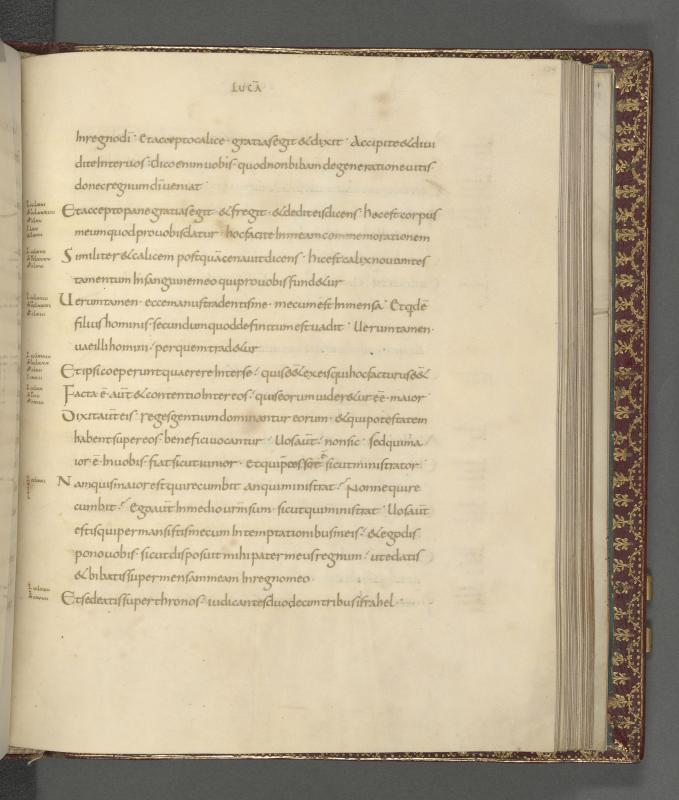 LUCĀ
In regno dī · Et accepto calice · gratias egit & dixit · Accipite & diui
dite Inter uos · dico enim uobis · quod non bibam de generatione uitis
donec regnum dī ueniat ·
Et accepto pane gratias egit & fregit · & dedit eis dicens hoc est corpus
meum quod pro uobis datur · hoc facite In meam commemorationem
Similiter & calicem postquā cenauit dicens · hic est calix nouum tes
tamentum In sanguine meo qui pro uobis fund&ur
Uerumtamen · ecce manus tradentis me · mecum est In mensa · Et qdē
filius hominis · secundum quod definitum est uadit · Uerumtamen ·
uae illi homini · per quem trad&ur
Et ipsi coeperunt quaerere Inter se · quis ēē& ex eis qui hoc facturus ēē&
Facta ē · aūt & contentio Inter eos · quis eorum uider&ur ēē · maior
Dixit aūt eis · reges gentium dominantur eorum · & qui potestatem
habent super eos · benefici uocantur · Uos aūt · non sic · sed qui ma
ior · ē · In uobis · fiat sicut iunior · et qui p̄cessor ē sicut ministrator ·
Nam quis maior est qui recumbit an qui ministrat · Nonne qui re
cumbit · Ego aūt In medio urm̄ sum · sicut qui ministrat · Uos aūt
estis qui permansistis mecum In temptationibus meis · & ego dis
pono uobis · sicut disposuit mihi pater meus regnum · ut edatis
& bibatis super mensam meam In regno meo ·
Et sedeatis super thronos · iudicantes duodecim tribus israhel ·